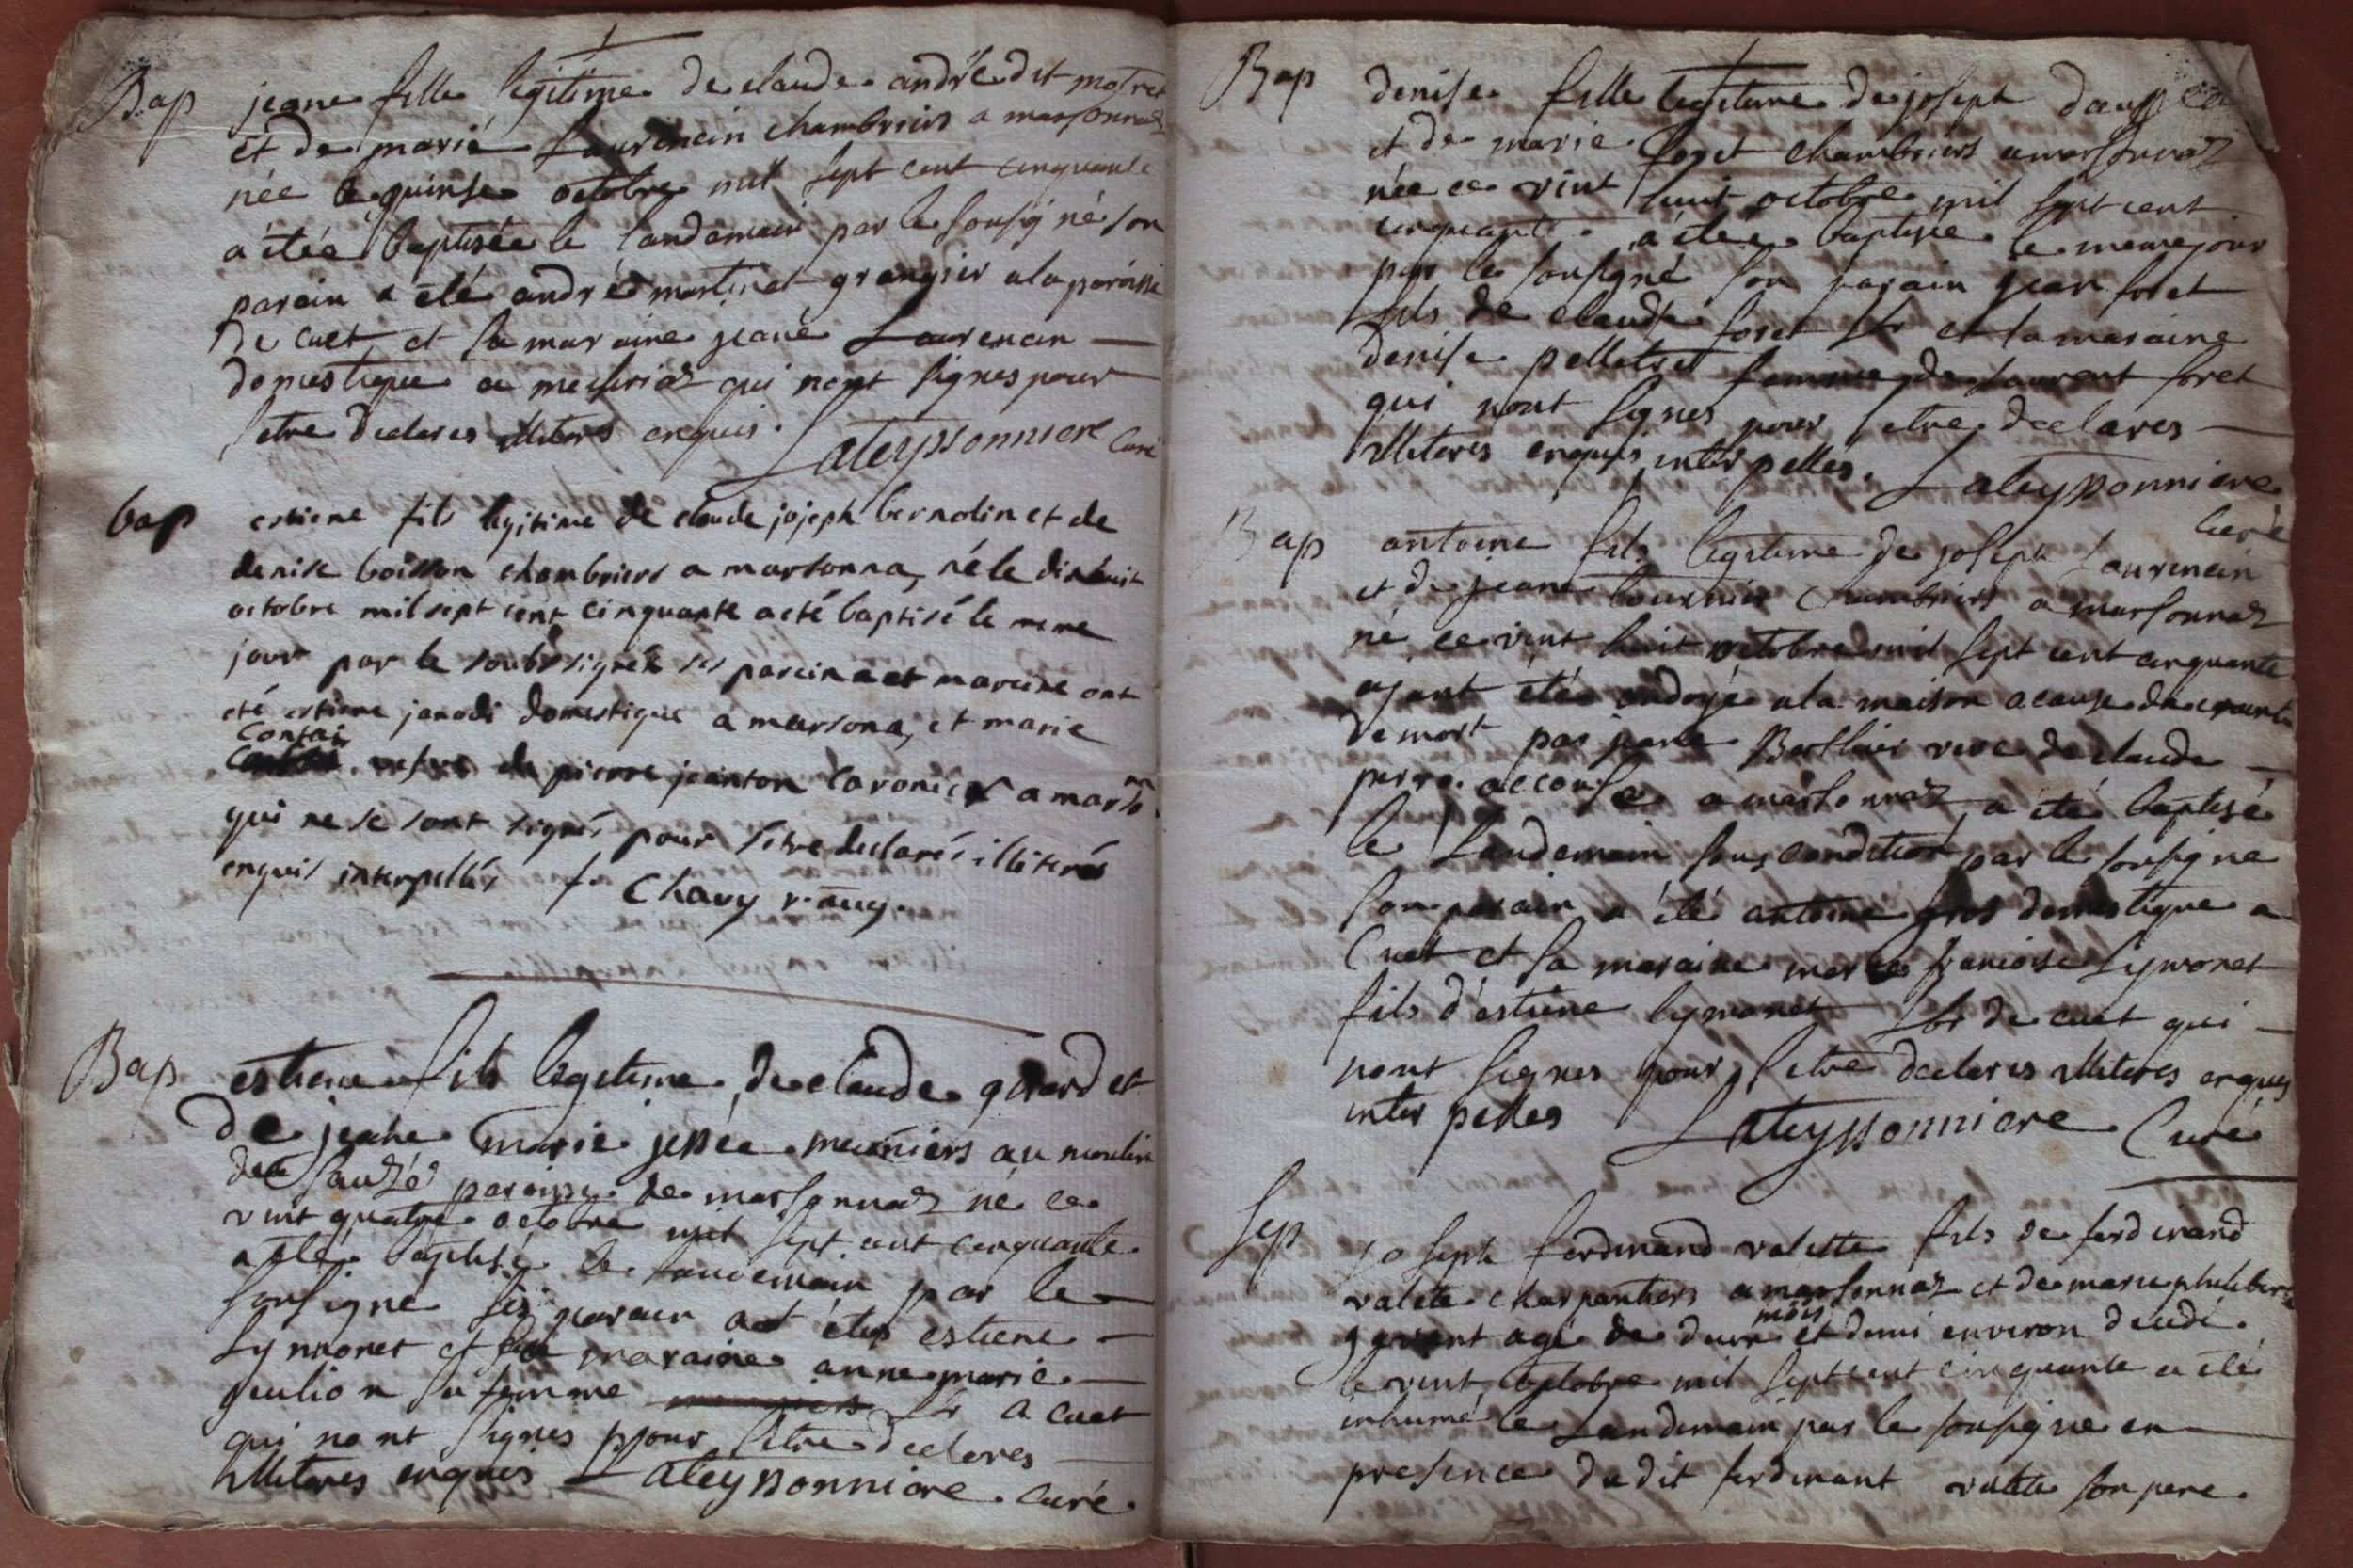 Bap jeane fille legitime de claude andré dit motret
et de marie Laurencin chambriers a marsonnaz
née le quinse octobre mil sept cent cinquante
a étée baptisée le landemain par le sousigné son
parain a été andré martinet grangier a la paroisse
de cuet et sa maraine jeane Laurencin
domestique a messeriaz qui nont signes pour
setre declares illiteres enquis. Lateyssonniere Curé
bap estiene fils legitime de claude joseph bernolin et de
denise boisson chambriers a marsonna, né le dixhuit
octobre mil sept cent cinquante a eté baptisé le meme
jour par le soubsigné ses parein et mareine ont
eté estiene janodi domestique a marsona, et marie
Contai
vefve de pierre jeanton a marso.
qui ne se sont signés pour s'etre declarés illiterés
enquis interpellés f. Chavy v. aug.
Bap estiene fils legitime de claude gerard et
de jeane marie jesée meuniers au moulin
de paroisse de marsonnaz né ce
vint quatre octobre mil sept cent cinquante
a été baptisé le landemain par le
sousigné ses parain ont étés estiene
Lymonet et maraine anne marie
sa femme a cuet
qui nont signes pour setre declares
illiteres enquis Lateyssonniere curé.
Bap denise fille legitime de joseph
et de marie foret chambriers a marsonnaz
née ce vint huit octobre mil sept cent
cinquante a étée baptisée le meme jour
par le sousigné son parain jean foret
fils de claude foret et la maraine
denise pelletret femme de laurent foret
qui nont signes pour setre declares
illiteres enquis interpelles. Lateyssonniere
Curé
Bap antoine fils legitime de joseph Laurencin
et de jeane chambriers a marsonnaz
né ce vint huit octobre mil sept cent cinquante
ayant été ondoyé a la maison a cause de crainte
de mort par jeane veve de claude
perra a marsonnaz a été baptisé
le Landemain sous condition par le sousigné
son parain a été antoine gros domestique a
Cuet et sa maraine marie francoise Lymonet
fils d'estiene lymonet de cuet qui
nont signes pour setre declares illiteres enquis
interpelles Lateyssonniere Curé
Sep joseph ferdinand valette fils de ferdinand
valete charpentiers a marsonnaz et de marie philiberte
mois
agé de deux et demi environ decedé
le vint octobre mil sept cent cinquante a été
inhumé le Landemain par le sousigné en
presence dudit ferdinant valete son pere.